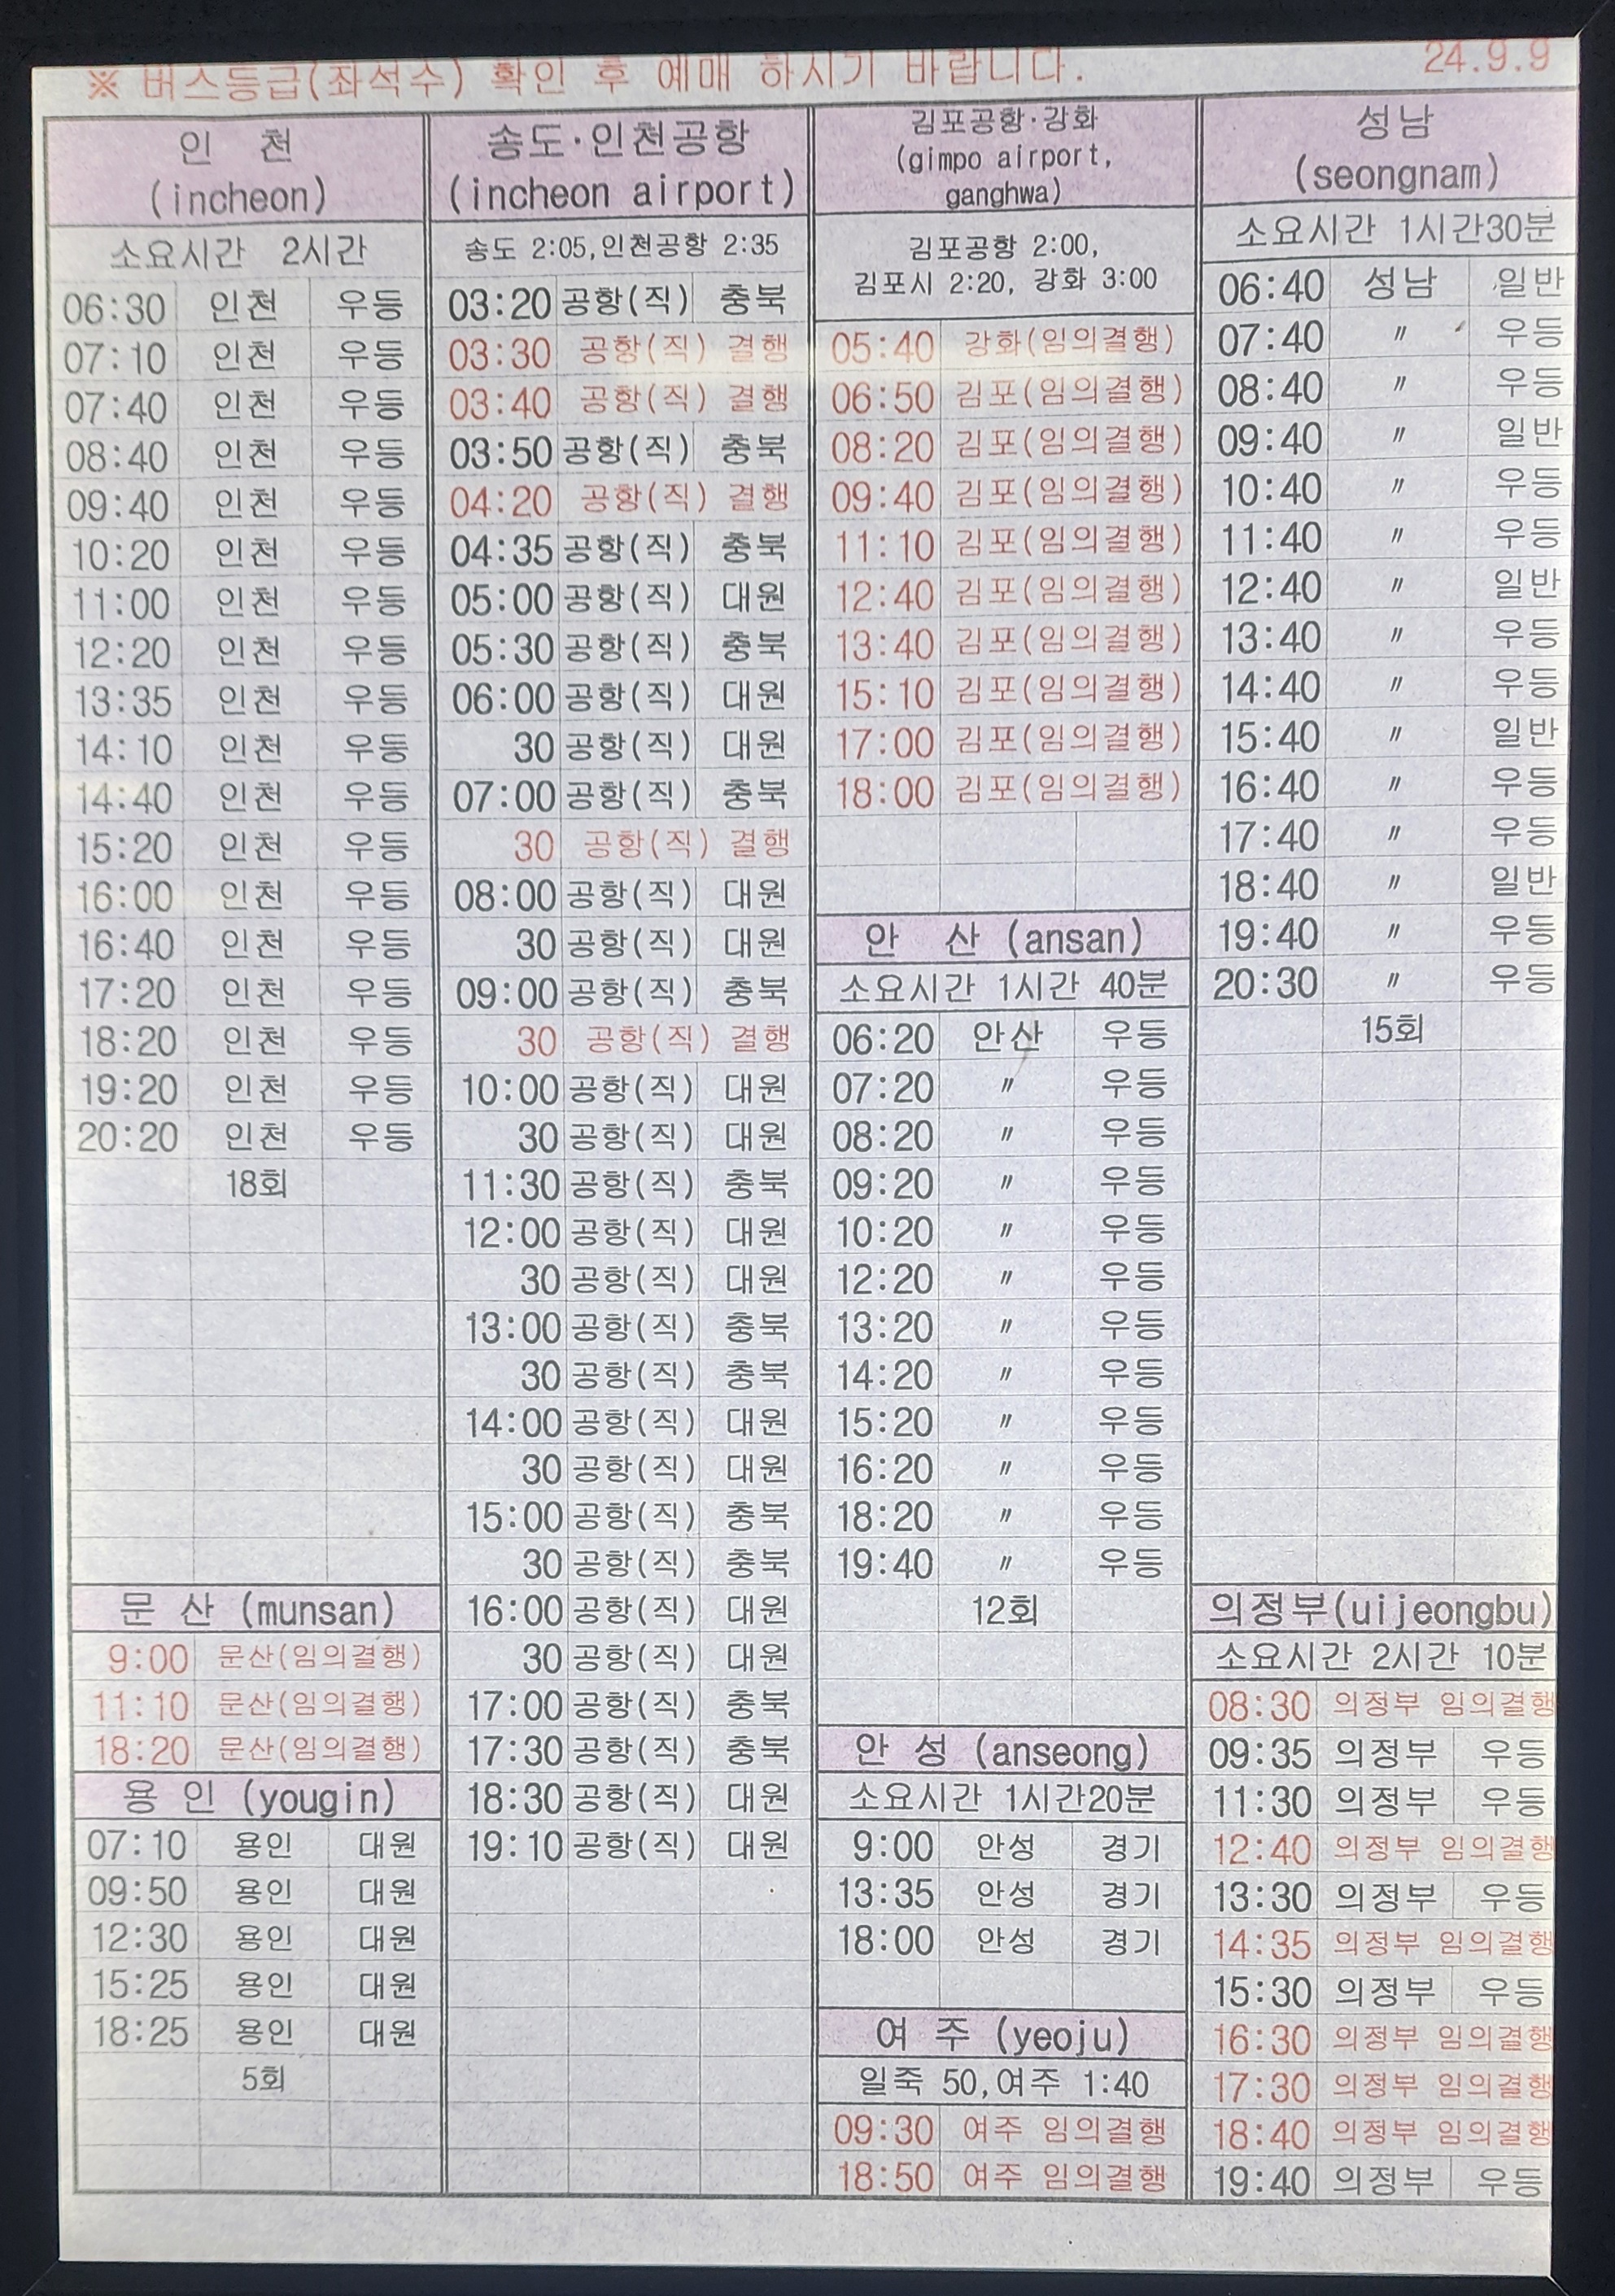 ※ 버스등급(좌석수) 확인 후 예매 하시기 바랍니다.
24.9.9
인 천
(incheon)
소요시간 2시간
06:30 인천 우등
07:10 인천 우등
07:40 인천 우등
08:40 인천 우등
09:40 인천 우등
10:20 인천 우등
11:00 인천 우등
12:20 인천 우등
13:35 인천 우등
14:10 인천 우등
14:40 인천 우등
15:20 인천 우등
16:00 인천 우등
16:40 인천 우등
17:20 인천 우등
18:20 인천 우등
19:20 인천 우등
20:20 인천 우등
18회
문 산 (munsan)
9:00 문산(임의결행)
11:10 문산(임의결행)
18:20 문산(임의결행)
용 인 (yougin)
07:10 용인 대원
09:50 용인 대원
12:30 용인 대원
15:25 용인 대원
18:25 용인 대원
5회
송도·인천공항
(incheon airport)
송도 2:05,인천공항 2:35
03:20 공항(직) 충북
03:30 공항(직) 결행
03:40 공항(직) 결행
03:50 공항(직) 충북
04:20 공항(직) 결행
04:35 공항(직) 충북
05:00 공항(직) 대원
05:30 공항(직) 충북
06:00 공항(직) 대원
30 공항(직) 대원
07:00 공항(직) 충북
30 공항(직) 결행
08:00 공항(직) 대원
30 공항(직) 대원
09:00 공항(직) 충북
30 공항(직) 결행
10:00 공항(직) 대원
30 공항(직) 대원
11:30 공항(직) 충북
12:00 공항(직) 대원
30 공항(직) 대원
13:00 공항(직) 충북
30 공항(직) 충북
14:00 공항(직) 대원
30 공항(직) 대원
15:00 공항(직) 충북
30 공항(직) 충북
16:00 공항(직) 대원
30 공항(직) 대원
17:00 공항(직) 충북
17:30 공항(직) 충북
18:30 공항(직) 대원
19:10 공항(직) 대원
김포공항·강화
(gimpo airport,
ganghwa)
김포공항 2:00,
김포시 2:20, 강화 3:00
05:40 강화(임의결행)
06:50 김포(임의결행)
08:20 김포(임의결행)
09:40 김포(임의결행)
11:10 김포(임의결행)
12:40 김포(임의결행)
13:40 김포(임의결행)
15:10 김포(임의결행)
17:00 김포(임의결행)
18:00 김포(임의결행)
안 산 (ansan)
소요시간 1시간 40분
06:20 안산 우등
07:20 〃 우등
08:20 〃 우등
09:20 〃 우등
10:20 〃 우등
12:20 〃 우등
13:20 〃 우등
14:20 〃 우등
15:20 〃 우등
16:20 〃 우등
18:20 〃 우등
19:40 〃 우등
12회
안 성 (anseong)
소요시간 1시간20분
9:00 안성 경기
13:35 안성 경기
18:00 안성 경기
여 주 (yeoju)
일죽 50,여주 1:40
09:30 여주 임의결행
18:50 여주 임의결행
성남
(seongnam)
소요시간 1시간30분
06:40 성남 일반
07:40 〃 우등
08:40 〃 우등
09:40 〃 일반
10:40 〃 우등
11:40 〃 우등
12:40 〃 일반
13:40 〃 우등
14:40 〃 우등
15:40 〃 일반
16:40 〃 우등
17:40 〃 우등
18:40 〃 일반
19:40 〃 우등
20:30 〃 우등
15회
의정부(uijeongbu)
소요시간 2시간 10분
08:30 의정부 임의결행
09:35 의정부 우등
11:30 의정부 우등
12:40 의정부 임의결행
13:30 의정부 우등
14:35 의정부 임의결행
15:30 의정부 우등
16:30 의정부 임의결행
17:30 의정부 임의결행
18:40 의정부 임의결행
19:40 의정부 우등